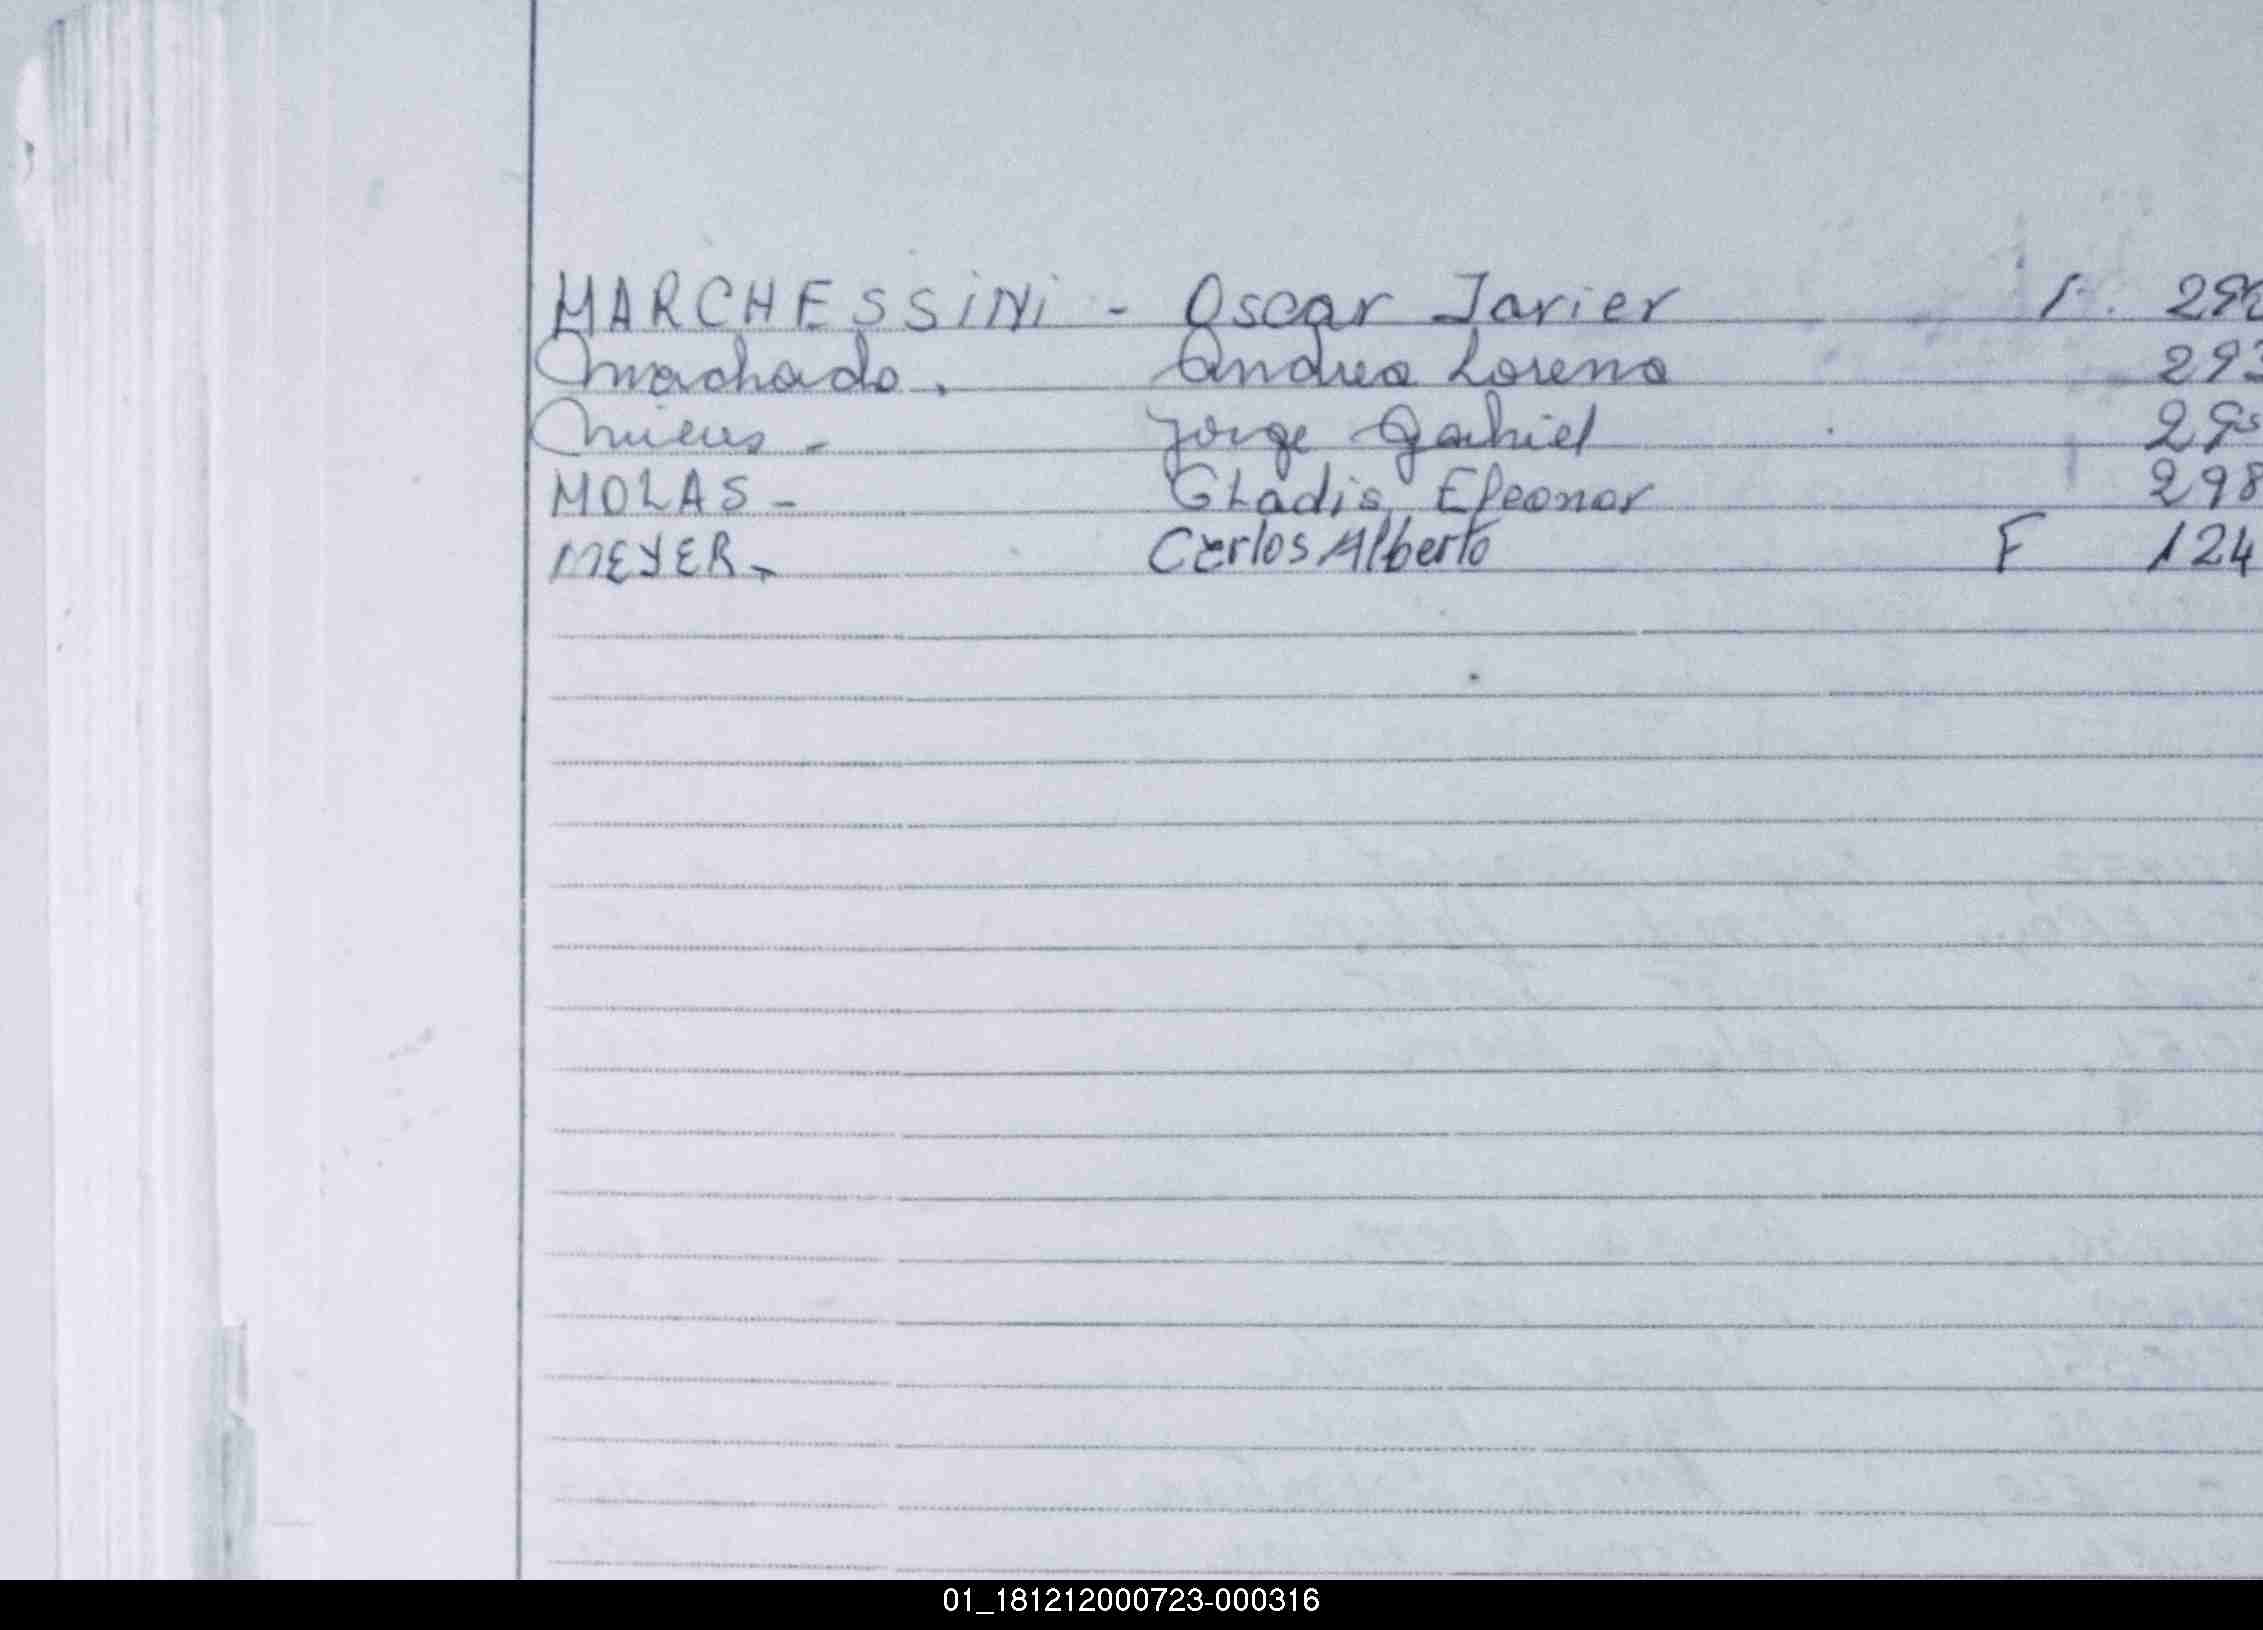 MARCHESSiNi - Oscar Javier 1. 29
Machado. Andrea Lorena 293
Mieres - Jorge Gabriel 29
MOLAS - GLadis Eleonor 298
MEYER - Carlos Alberto F 124
01_181212000723-000316